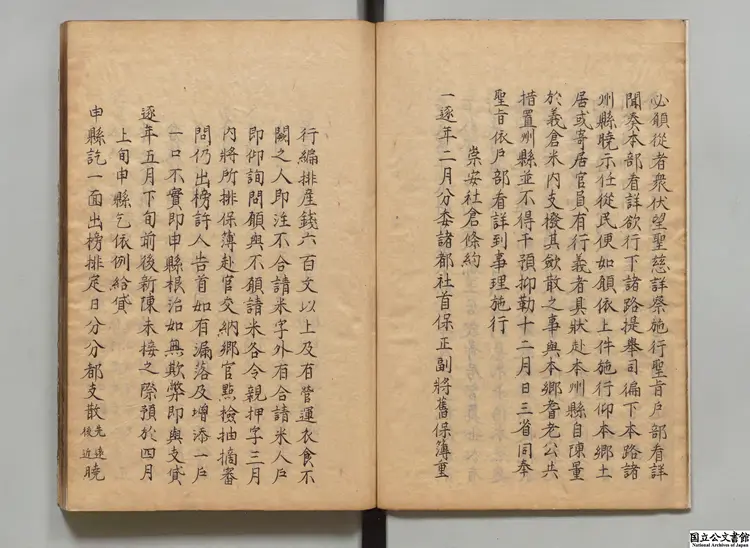 必願從者衆伏望聖慈詳察施行聖旨戶部看詳
聞奏本部看詳欲行下諸路提舉司徧下本路諸
州縣曉示任從民便如願依上件施行仰本鄉土
居或寄居官員有行義者具狀赴本州縣自陳量
於義倉米內支撥其歛散之事與本鄉耆老公共
措置州縣並不得干預抑勒十二月日三省同奉
聖旨依戶部看詳到事理施行
崇安社倉條約
一逐年二月分委諸都社首保正副將舊保簿重
行編排產錢六百文以上及有營運衣食不
闕之人即注不合請米字外有合請米人戶
即仰詢問願與不願請米各令親押字三月
內將所排保簿赴官交納鄉官點檢抽摘審
問仍出榜許人告首如有漏落及增添一戶
一口不實即申縣根治如無欺弊即與支貸
逐年五月下旬前後新陳未接之際預於四月
上旬申縣乞依例給貸
申縣訖一面出榜排定日分分都支散先遠後近曉
国立公文書館
National Archives of Japan